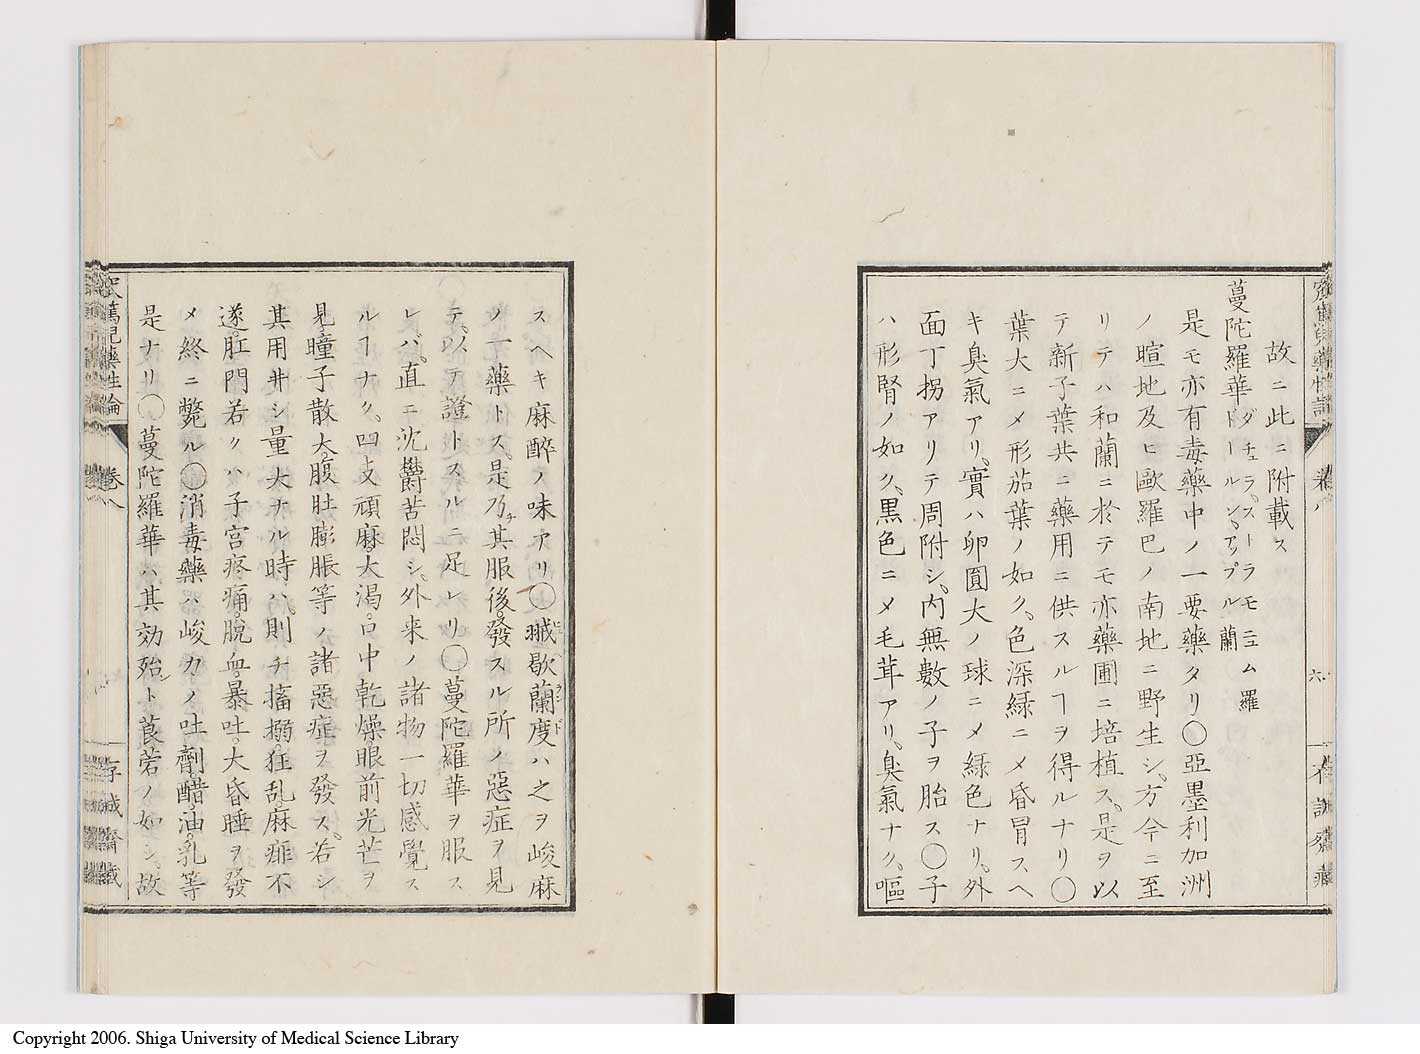 故ニ此ニ附載ス
蔓陀羅華 ダチュラ、スーラモニュム 羅
ドールンアプル 蘭
是モ亦有毒藥中ノ一要藥タリ〇亞墨利加洲
ノ暄地及ヒ歐羅巴ノ南地ニ野生シ、方今ニ至
リテハ和蘭ニ於テモ亦藥圃ニ培植ス、是ヲ以
テ新子葉共ニ藥用ニ供スルヿヲ得ルナリ〇
葉大ニメ形茄葉ノ如ク、色深緑ニメ昏冒スヘ
キ臭氣アリ、實ハ卵圓大ノ球ニメ緑色ナリ、外
面丁拐アリテ周附シ、内無數ノ子ヲ胎ス〇子
ハ形腎ノ如ク、黒色ニメ毛茸アリ、臭氣ナク、嘔
六
卷八
スヘキ麻醉ノ味アリ〇蘭度ハ之ヲ峻麻
ノ一藥トス、是乃チ其服後、發スル所ノ惡症ヲ見
テ、以テ證トスルニ足レリ〇蔓陀羅華ヲ服ス
レバ、直ニ沈鬱苦悶シ、外来ノ諸物一切感覺ス
ルヿナク、四支頑麻、大渇、口中乾燥、眼前光芒ヲ
見、瞳子散大、腹肚膨脹等ノ諸惡症ヲ發ス、若シ
其用井シ量大ナル時ハ、則チ搐搦、狂亂、麻痱不
遂、肛門若クハ子宮疼痛、脱血、暴吐、大昏睡ヲ發
メ終ニ斃ル〇消毒藥ハ峻力ノ吐劑、醋、油、乳等
是ナリ〇蔓陀羅華ハ其効殆ト莨菪ノ如シ、故
藥性論
卷八